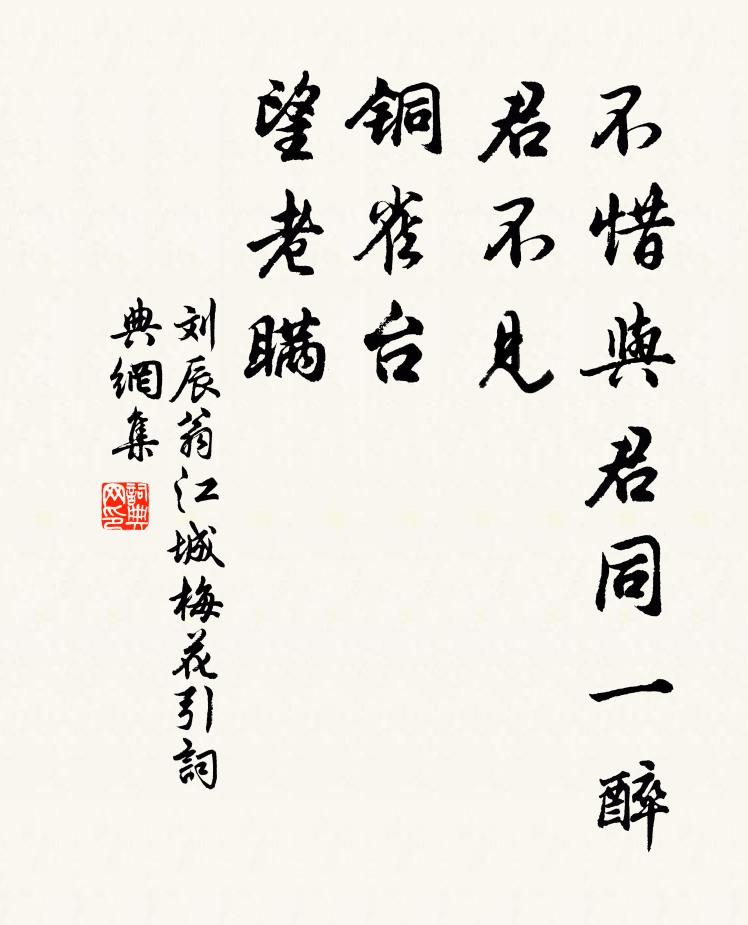 不惜與君同一醉
君不見
铜雀台
望老瞞
刘辰翁江城梅花引詞
典網集
詞典
网印